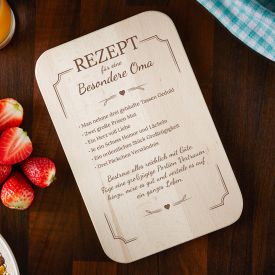 REZEPT
für eine
Besondere Oma
- Man nehme drei gehäufte Tassen Geduld
- Zwei große Prisen Mut
- Ein Herz voll Liebe
- Je ein Schuss Humor und Lächeln
- Ein ordentliches Stück Großzügigkeit
- Drei Päckchen Verständnis
Bestreue alles reichlich mit Güte.
Füge eine großzügige Portion Vertrauen
hinzu, mixe es gut und verteile es auf
ein ganzes Leben.